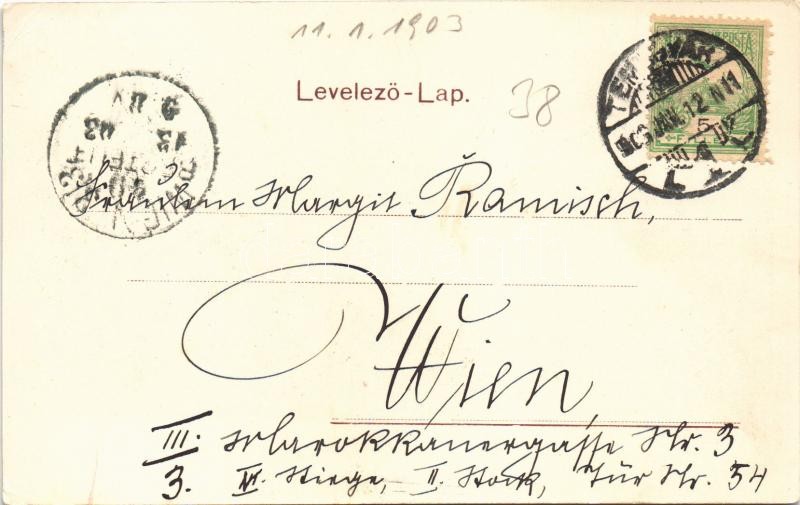 11. 1. 1903
Levelező-Lap.
38
TEMESVÁR
903 JAN. 12 N 11
5
WIEN
13 1 03
Fräulein Margit Ramisch,
Wien,
III. Marokkanergasse Nr. 3
3. VI. Stiege, II. Stock, Tür Nr. 54